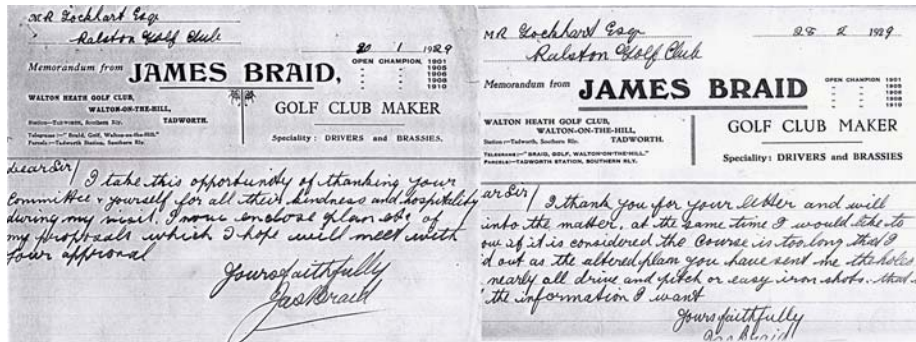 MR Lockhart Esqr
Ralston Golf Club
20 1 1929
Memorandum from JAMES BRAID,
OPEN CHAMPION, 1901
" " 1905
" " 1906
" " 1908
" " 1910
WALTON HEATH GOLF CLUB,
WALTON-ON-THE-HILL,
TADWORTH.
Station—Tadworth, Southern Rly.
Telegrams—"Braid, Golf, Walton-on-the-Hill."
Parcels—Tadworth Station, Southern Rly.
GOLF CLUB MAKER
Speciality: DRIVERS and BRASSIES.
Dear Sir/
I take this opportunity of thanking your
Committee & yourself for all their kindness and hospitality
during my visit. I now enclose plan etc of
my proposals which I hope will meet with
your approval
Yours faithfully
Jas Braid
MR Lockhart Esqr
Ralston Golf Club
28 2 1929
Memorandum from JAMES BRAID
OPEN CHAMPION 1901
" " 1905
" " 1906
" " 1908
" " 1910
WALTON HEATH GOLF CLUB,
WALTON-ON-THE-HILL,
Station—Tadworth, Southern Rly. TADWORTH.
TELEGRAMS—"BRAID, GOLF, WALTON-ON-THE-HILL."
PARCELS—TADWORTH STATION, SOUTHERN RLY.
GOLF CLUB MAKER
Speciality: DRIVERS and BRASSIES
ar Sir/
I thank you for your letter and will
into the matter, at the same time I would like to
ow if it is considered the Course is too long that I
d out as the altered plan you have sent me the holes
nearly all drive and pitch or easy iron shots. that
the information I want
Yours faithfully
Jas Braid